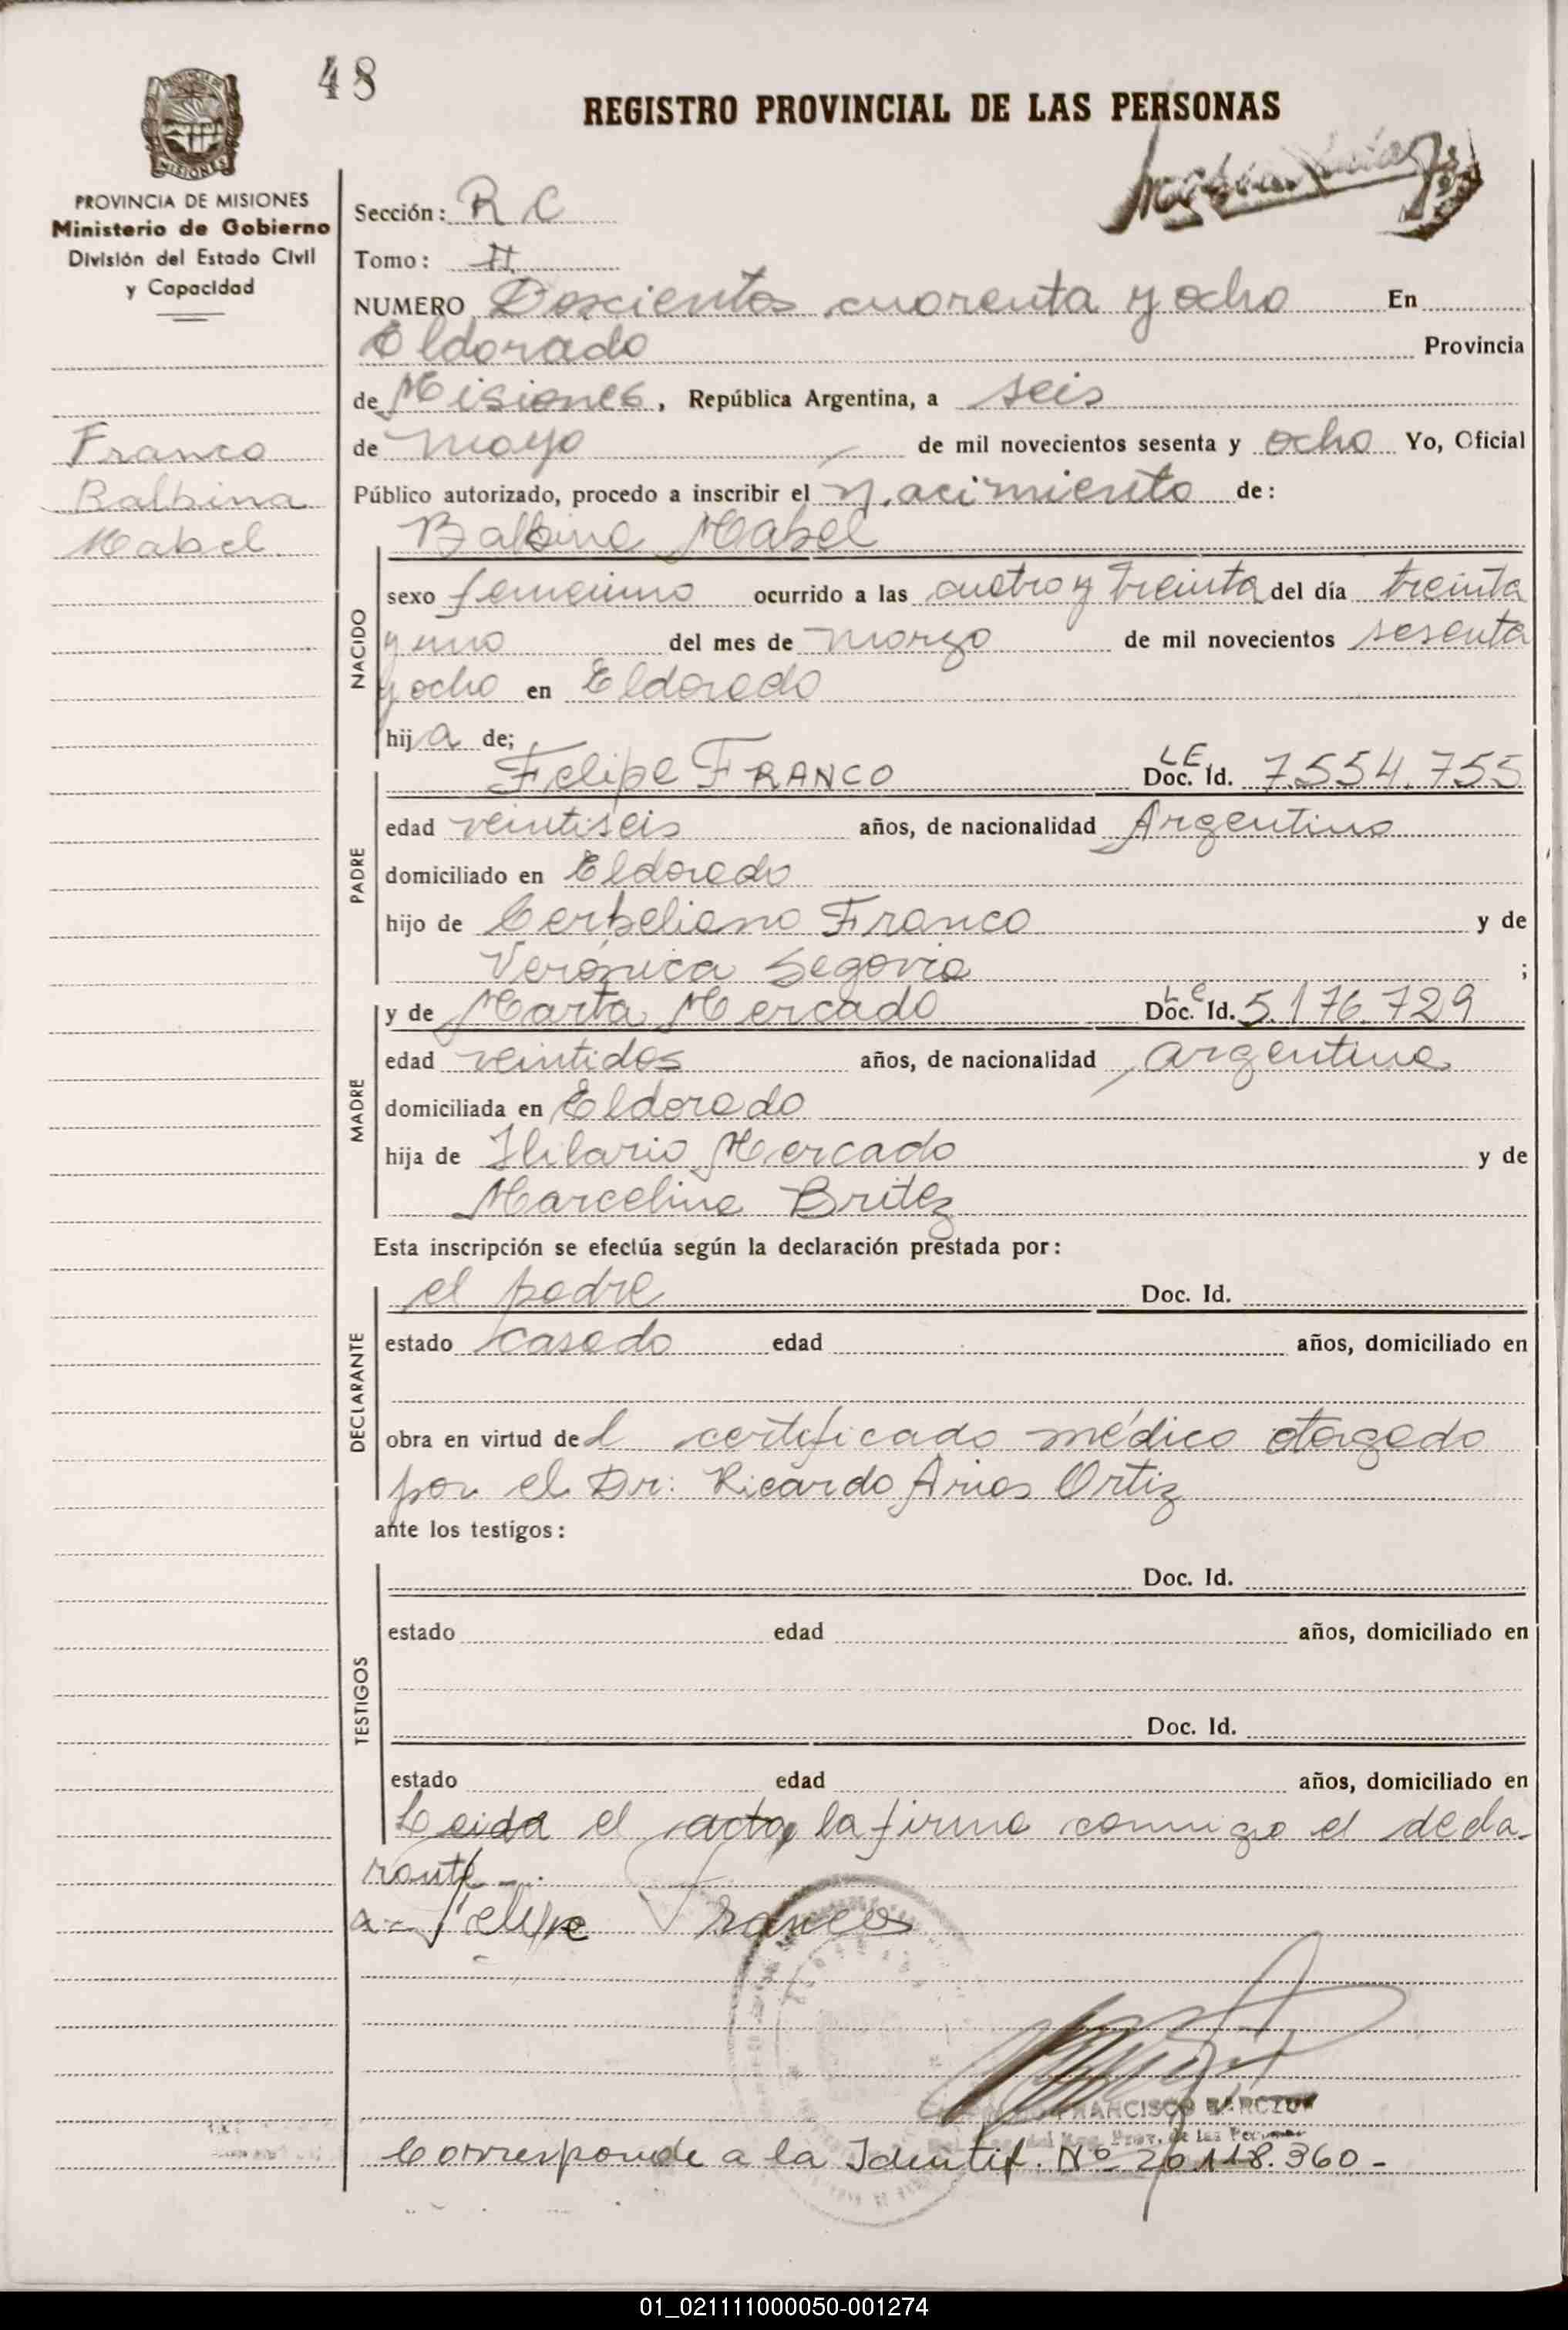 48
REGISTRO PROVINCIAL DE LAS PERSONAS
MISIONES
PROVINCIA DE MISIONES
Ministerio de Gobierno
División del Estado Civil
y Capacidad
Franco
Balbina
Mabel
Sección: R C
Tomo: II
NUMERO Doscientos cuarenta y ocho En
Eldorado Provincia
de Misiones, República Argentina, a seis
de mayo de mil novecientos sesenta y ocho Yo, Oficial
Público autorizado, procedo a inscribir el Nacimiento de:
Balbina Mabel
NACIDO
sexo femenino ocurrido a las cuatro y treinta del día treinta
y uno del mes de marzo de mil novecientos sesenta
y ocho en Eldorado
hija de;
PADRE
Felipe FRANCO LE Doc. Id. 7.554.755
edad veintiseis años, de nacionalidad Argentino
domiciliado en Eldorado
hijo de Cerbeliano Franco y de
Verónica Segovia ;
MADRE
y de Marta Mercado LC Doc. Id. 5.176.729
edad veintidos años, de nacionalidad argentina
domiciliada en Eldorado
hija de Hilario Mercado y de
Marcelina Britez
Esta inscripción se efectúa según la declaración prestada por:
DECLARANTE
el padre Doc. Id.
estado casado edad años, domiciliado en
obra en virtud del certificado médico otorgado
por el Dr: Ricardo Arios Ortiz
ante los testigos:
TESTIGOS
Doc. Id.
estado edad años, domiciliado en
Doc. Id.
estado edad años, domiciliado en
Leida el acta, la firma conmigo el decla-
rante -.
x- Felipe Franco
FRANCISCO BARCZUK
Corresponde a la Identif. Nº 20.118.360-
01_021111000050-001274